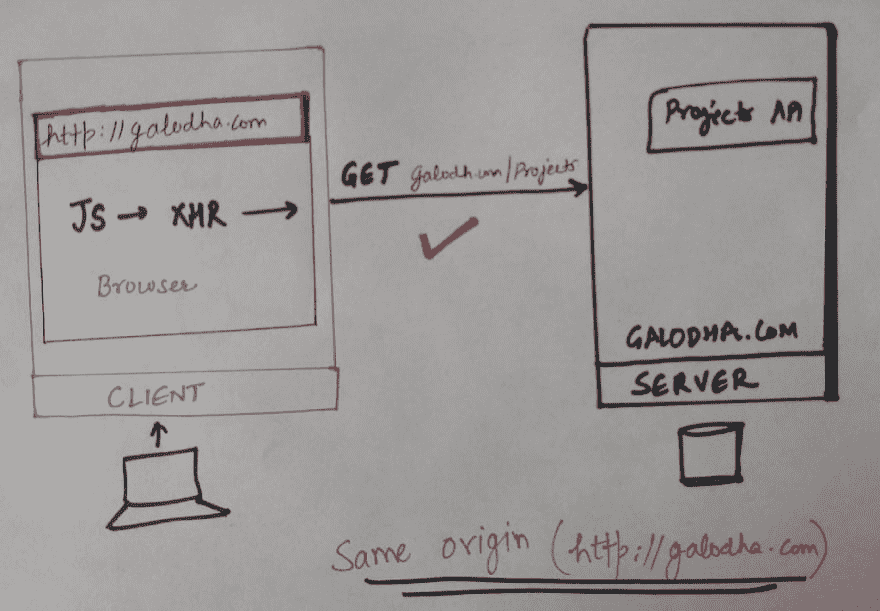 http://galodha.com
JS → XHR →
Browser
CLIENT
GET galodh.com/Projects
Projects
GALODHA.COM
SERVER
Same origin (http://galodha.com)